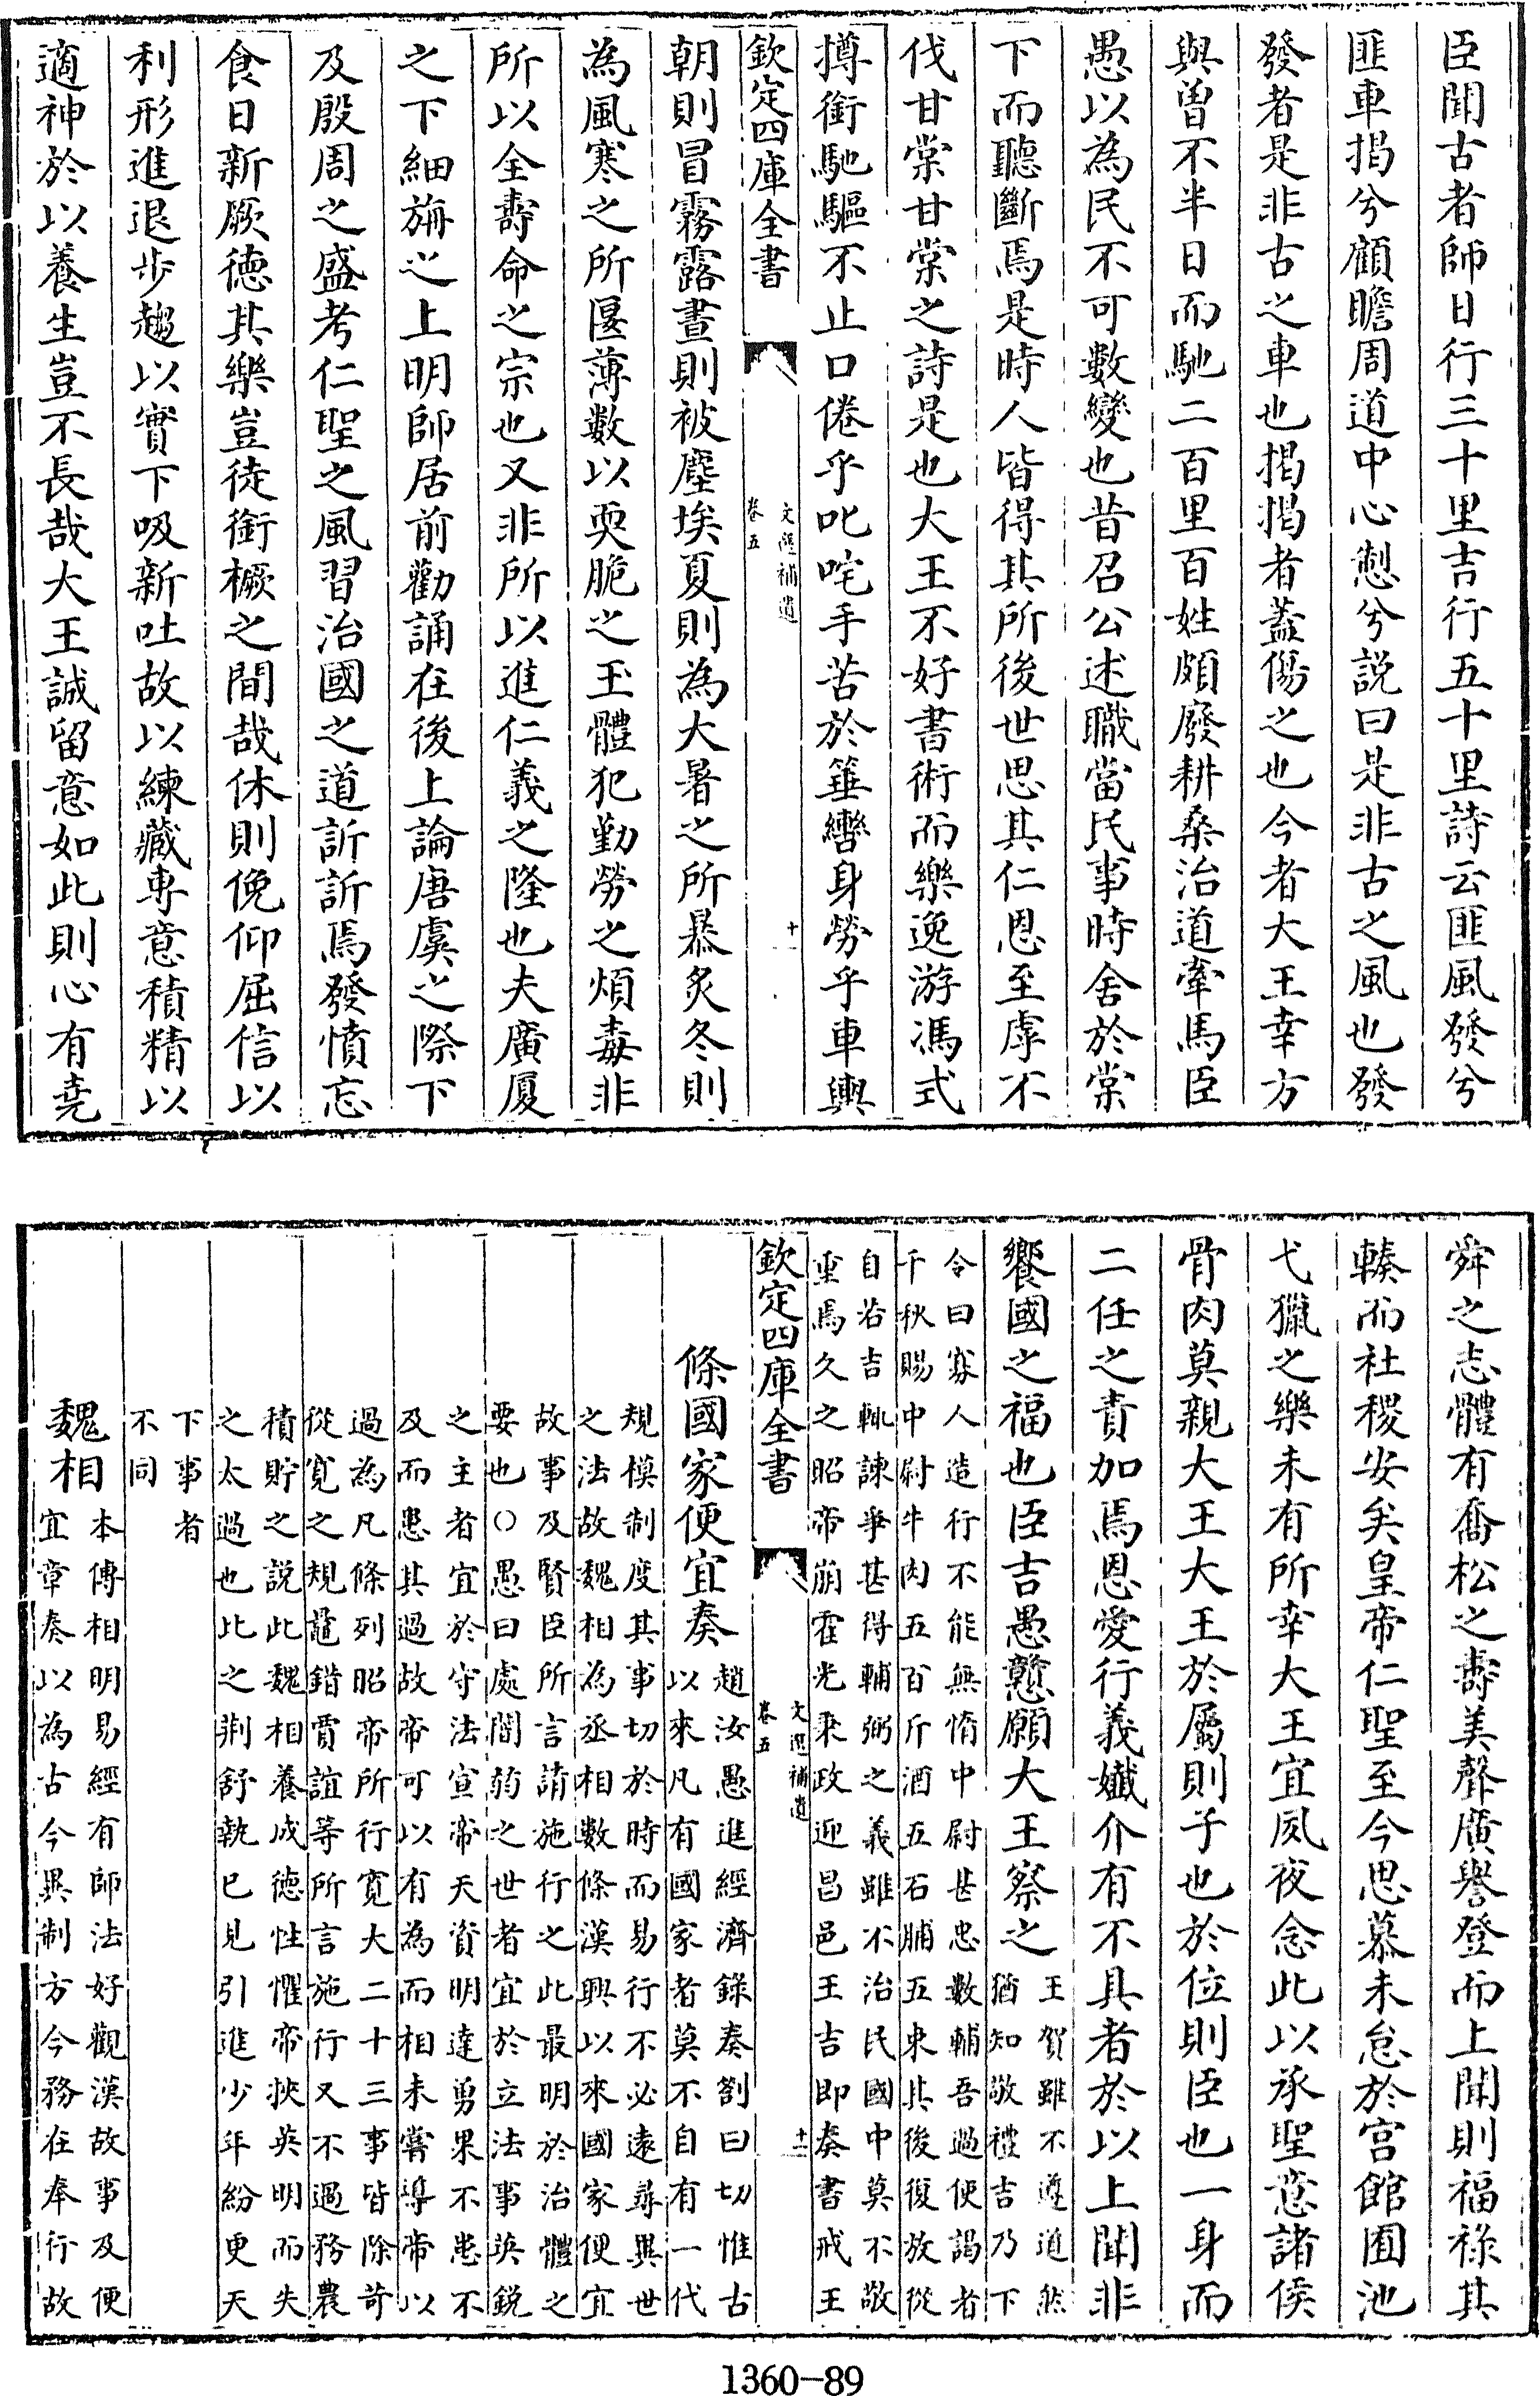 臣聞古者師日行三十里吉行五十里詩云匪風發兮
匪車揭兮顧瞻周道中心㤠兮説曰是非古之風也發
發者是非古之車也揭揭者蓋傷之也今者大王幸方
與曽不半日而馳二百里百姓頗廢耕桑治道牽馬臣
愚以為民不可數變也昔召公述職當民事時舍於棠
下而聽斷焉是時人皆得其所後世思其仁恩至虖不
伐甘棠甘棠之詩是也大王不好書術而樂逸游馮式
撙銜馳驅不止口倦乎叱咤手苦於箠轡身勞乎車輿
欽定四庫全書
文選補遺
卷五
十一
朝則冒霧露晝則被塵埃夏則為大暑之所暴炙冬則
為風寒之所匽薄數以耎脆之玉體犯勤勞之煩毒非
所以全壽命之宗也又非所以進仁義之隆也夫廣厦
之下細旃之上明師居前勸誦在後上論唐虞之際下
及殷周之盛考仁聖之風習治國之道訢訢焉發憤忘
食日新厥德其樂豈徒銜橛之間哉休則俛仰屈信以
利形進退步趨以實下吸新吐故以練藏専意積精以
適神於以養生豈不長哉大王誠留意如此則心有堯
舜之志體有喬松之壽美聲廣譽登而上聞則福祿其
轃而社稷安矣皇帝仁聖至今思慕未怠於宫館囿池
弋獵之樂未有所幸大王宜夙夜念此以承聖意諸侯
骨肉莫親大王大王於屬則子也於位則臣也一身而
二任之責加焉恩愛行義孅介有不具者於以上聞非
饗國之福也臣吉愚戇願大王察之
王賀雖不遵道然
猶知敬禮吉乃下
令曰寡人造行不能無惰中尉甚忠數輔吾過使謁者
千秋賜中尉牛肉五百斤酒五石脯五束其後復放從
自若吉輒諫爭甚得輔弼之義雖不治民國中莫不敬
重焉久之昭帝崩霍光秉政迎昌邑王吉即奏書戒王
欽定四庫全書
文選補遺
卷五
十二
條國家便宜奏
趙汝愚進經濟錄奏劄曰切惟古
以來凡有國家者莫不自有一代
規模制度其事切於時而易行不必遠尋異世
之法故魏相為丞相數條漢興以來國家便宜
故事及賢臣所言請施行之此最明於治體之
要也○愚曰處闇弱之世者宜於立法事英鋭
之主者宜於守法宣帝天資明達勇果不患不
及而患其過故帝可以有為而相未嘗導帝以
過為凡條列昭帝所行寛大二十三事皆除苛
從寛之規鼂錯賈誼等所言施行又不過務農
積貯之説此魏相養成德性懼帝挾英明而失
之太過也比之荆舒執已見引進少年紛更天
下事者
不同
魏相
本傳相明易經有師法好觀漢故事及便
宜章奏以為古今異制方今務在奉行故
1360-89